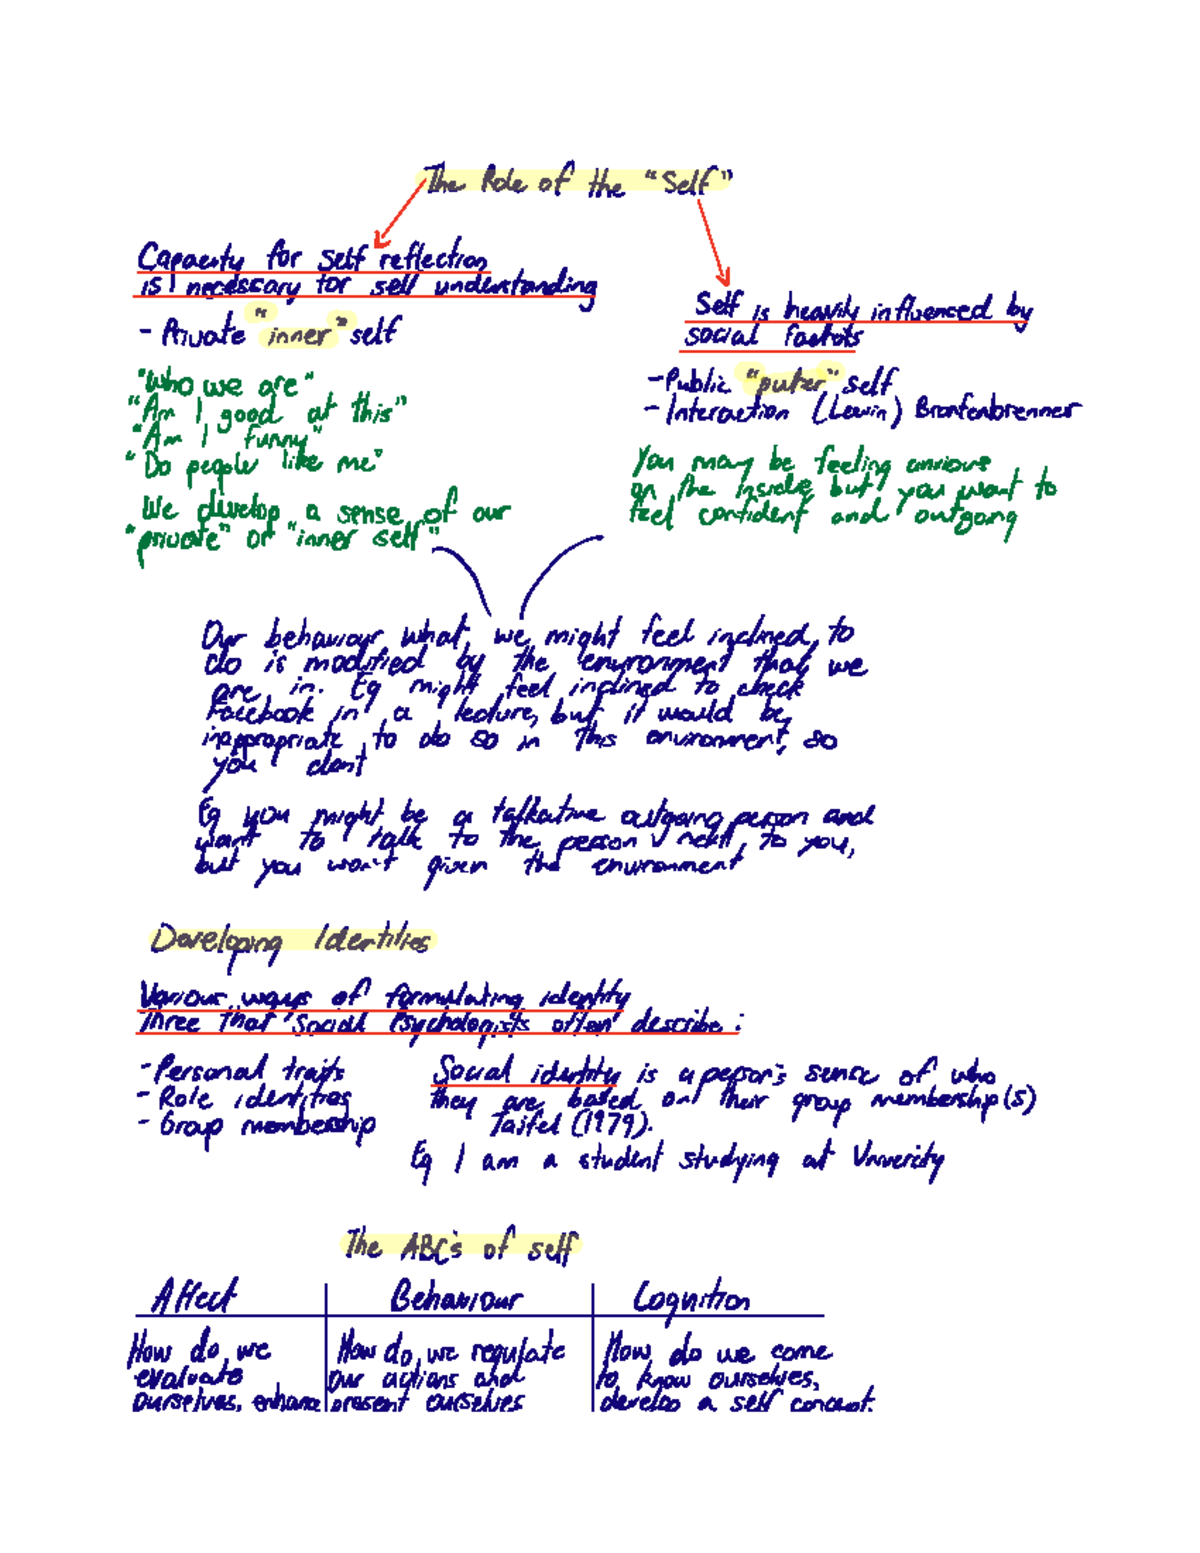 The Role of the "Self"
Capacity for self reflection
is necessary for self understanding
- Private "inner" self
"Who we are"
"Am I good at this"
"Am I funny"
"Do people like me"
We develop a sense of our
"private" or "inner self"
Self is heavily influenced by
social factors
- Public "outer" self
- Interaction (Lewin) Bronfenbrenner
You may be feeling anxious
on the inside, but you want to
feel confident and outgoing
Our behaviour what we might feel inclined to
do is modified by the environment that we
are in. Eg might feel inclined to check
Facebook in a lecture, but it would be
inappropriate to do so in this environment, so
you don't
Eg you might be a talkative outgoing person and
want to talk to the person next to you,
but you won't given the environment
Developing Identities
Various ways of formulating identity
Three that Social Psychologists often describe:
- Personal traits
- Role identities
- Group membership
Social identity is a person's sense of who
they are based on their group membership(s)
Tajfel (1979).
Eg I am a student studying at Univercity
The ABC's of self
Affect
Behaviour
Cognition
How do we
evaluate
ourselves, enhance
How do we regulate
our actions and
present ourselves
How do we come
to know ourselves,
develop a self concept.